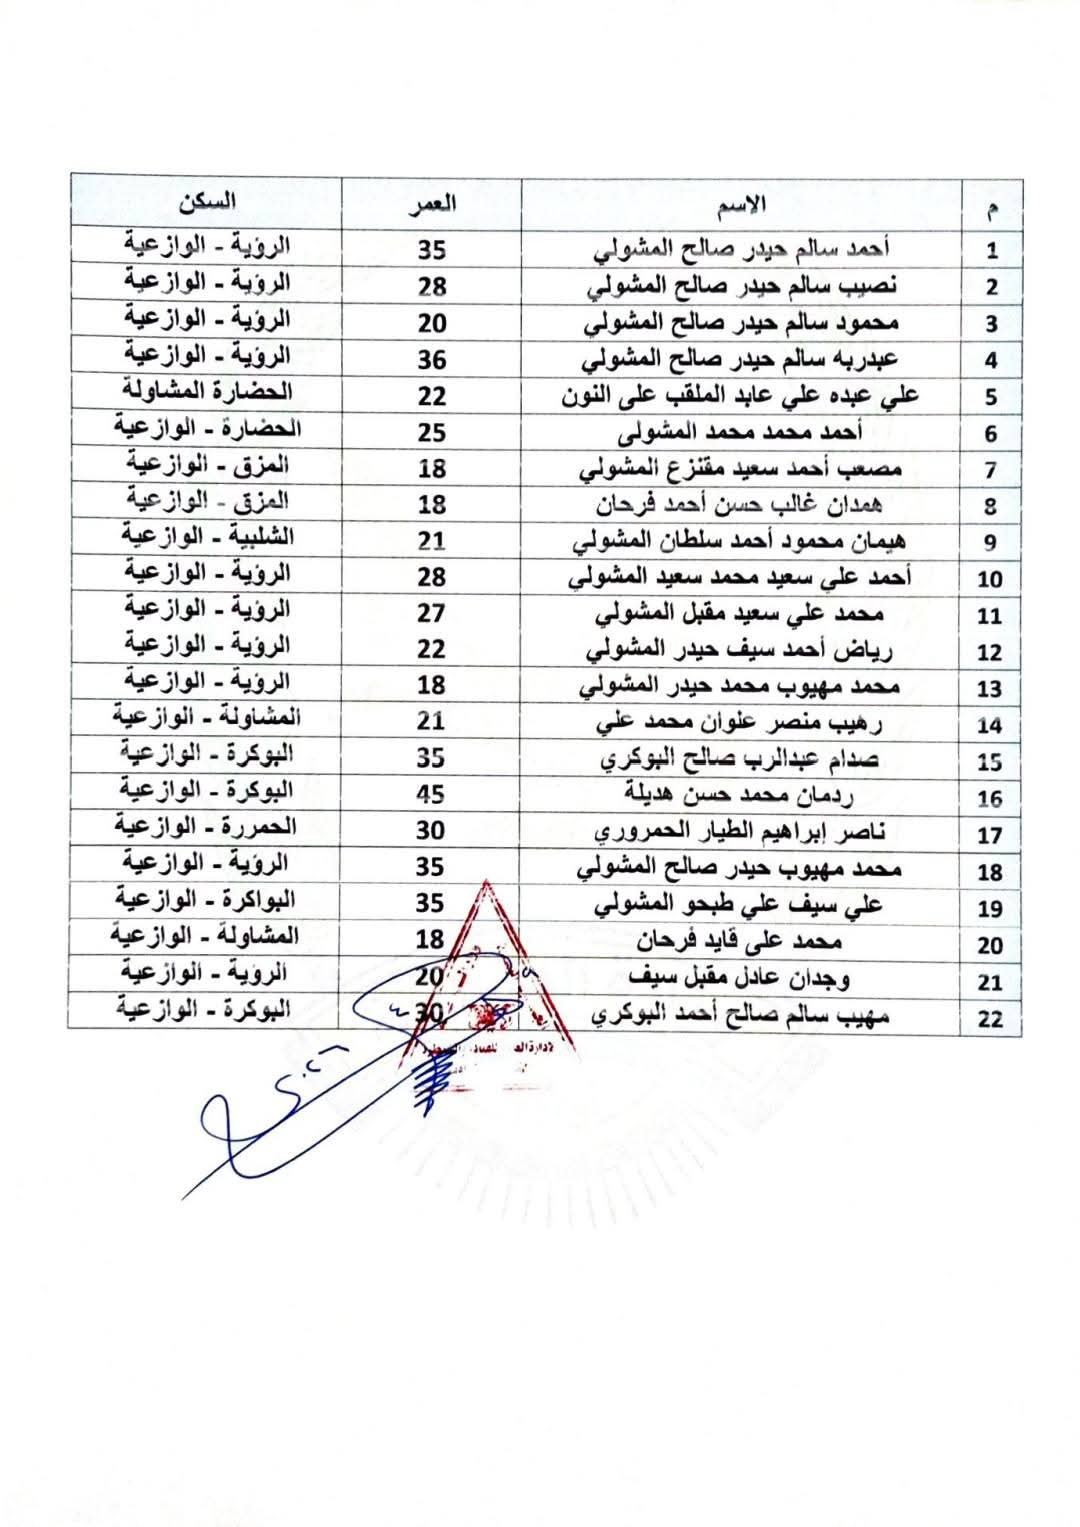 م الاسم العمر السكن
1 أحمد سالم حيدر صالح المشولي 35 الرؤية - الوازعية
2 نصيب سالم حيدر صالح المشولي 28 الرؤية - الوازعية
3 محمود سالم حيدر صالح المشولي 20 الرؤية - الوازعية
4 عبدربه سالم حيدر صالح المشولي 36 الرؤية - الوازعية
5 علي عبده علي عابد الملقب على النون 22 الحضارة المشاولة
6 أحمد محمد محمد المشولى 25 الحضارة - الوازعية
7 مصعب أحمد سعيد مقنزع المشولي 18 المزق - الوازعية
8 همدان غالب حسن أحمد فرحان 18 المزق - الوازعية
9 هيمان محمود أحمد سلطان المشولي 21 الشلبية - الوازعية
10 أحمد علي سعيد محمد سعيد المشولي 28 الرؤية - الوازعية
11 محمد علي سعيد مقبل المشولي 27 الرؤية - الوازعية
12 رياض أحمد سيف حيدر المشولي 22 الرؤية - الوازعية
13 محمد مهيوب محمد حيدر المشولي 18 الرؤية - الوازعية
14 رهيب منصر علوان محمد علي 21 المشاولة - الوازعية
15 صدام عبدالرب صالح البوكري 35 البوكرة - الوازعية
16 ردمان محمد حسن هديلة 45 البوكرة - الوازعية
17 ناصر إبراهيم الطيار الحمروري 30 الحمررة - الوازعية
18 محمد مهيوب حيدر صالح المشولي 35 الرؤية - الوازعية
19 علي سيف علي طبحو المشولي 35 البواكرة - الوازعية
20 محمد على قايد فرحان 18 المشاولة - الوازعية
21 وجدان عادل مقبل سيف 20 الرؤية - الوازعية
22 مهيب سالم صالح أحمد البوكري 30 البوكرة - الوازعية